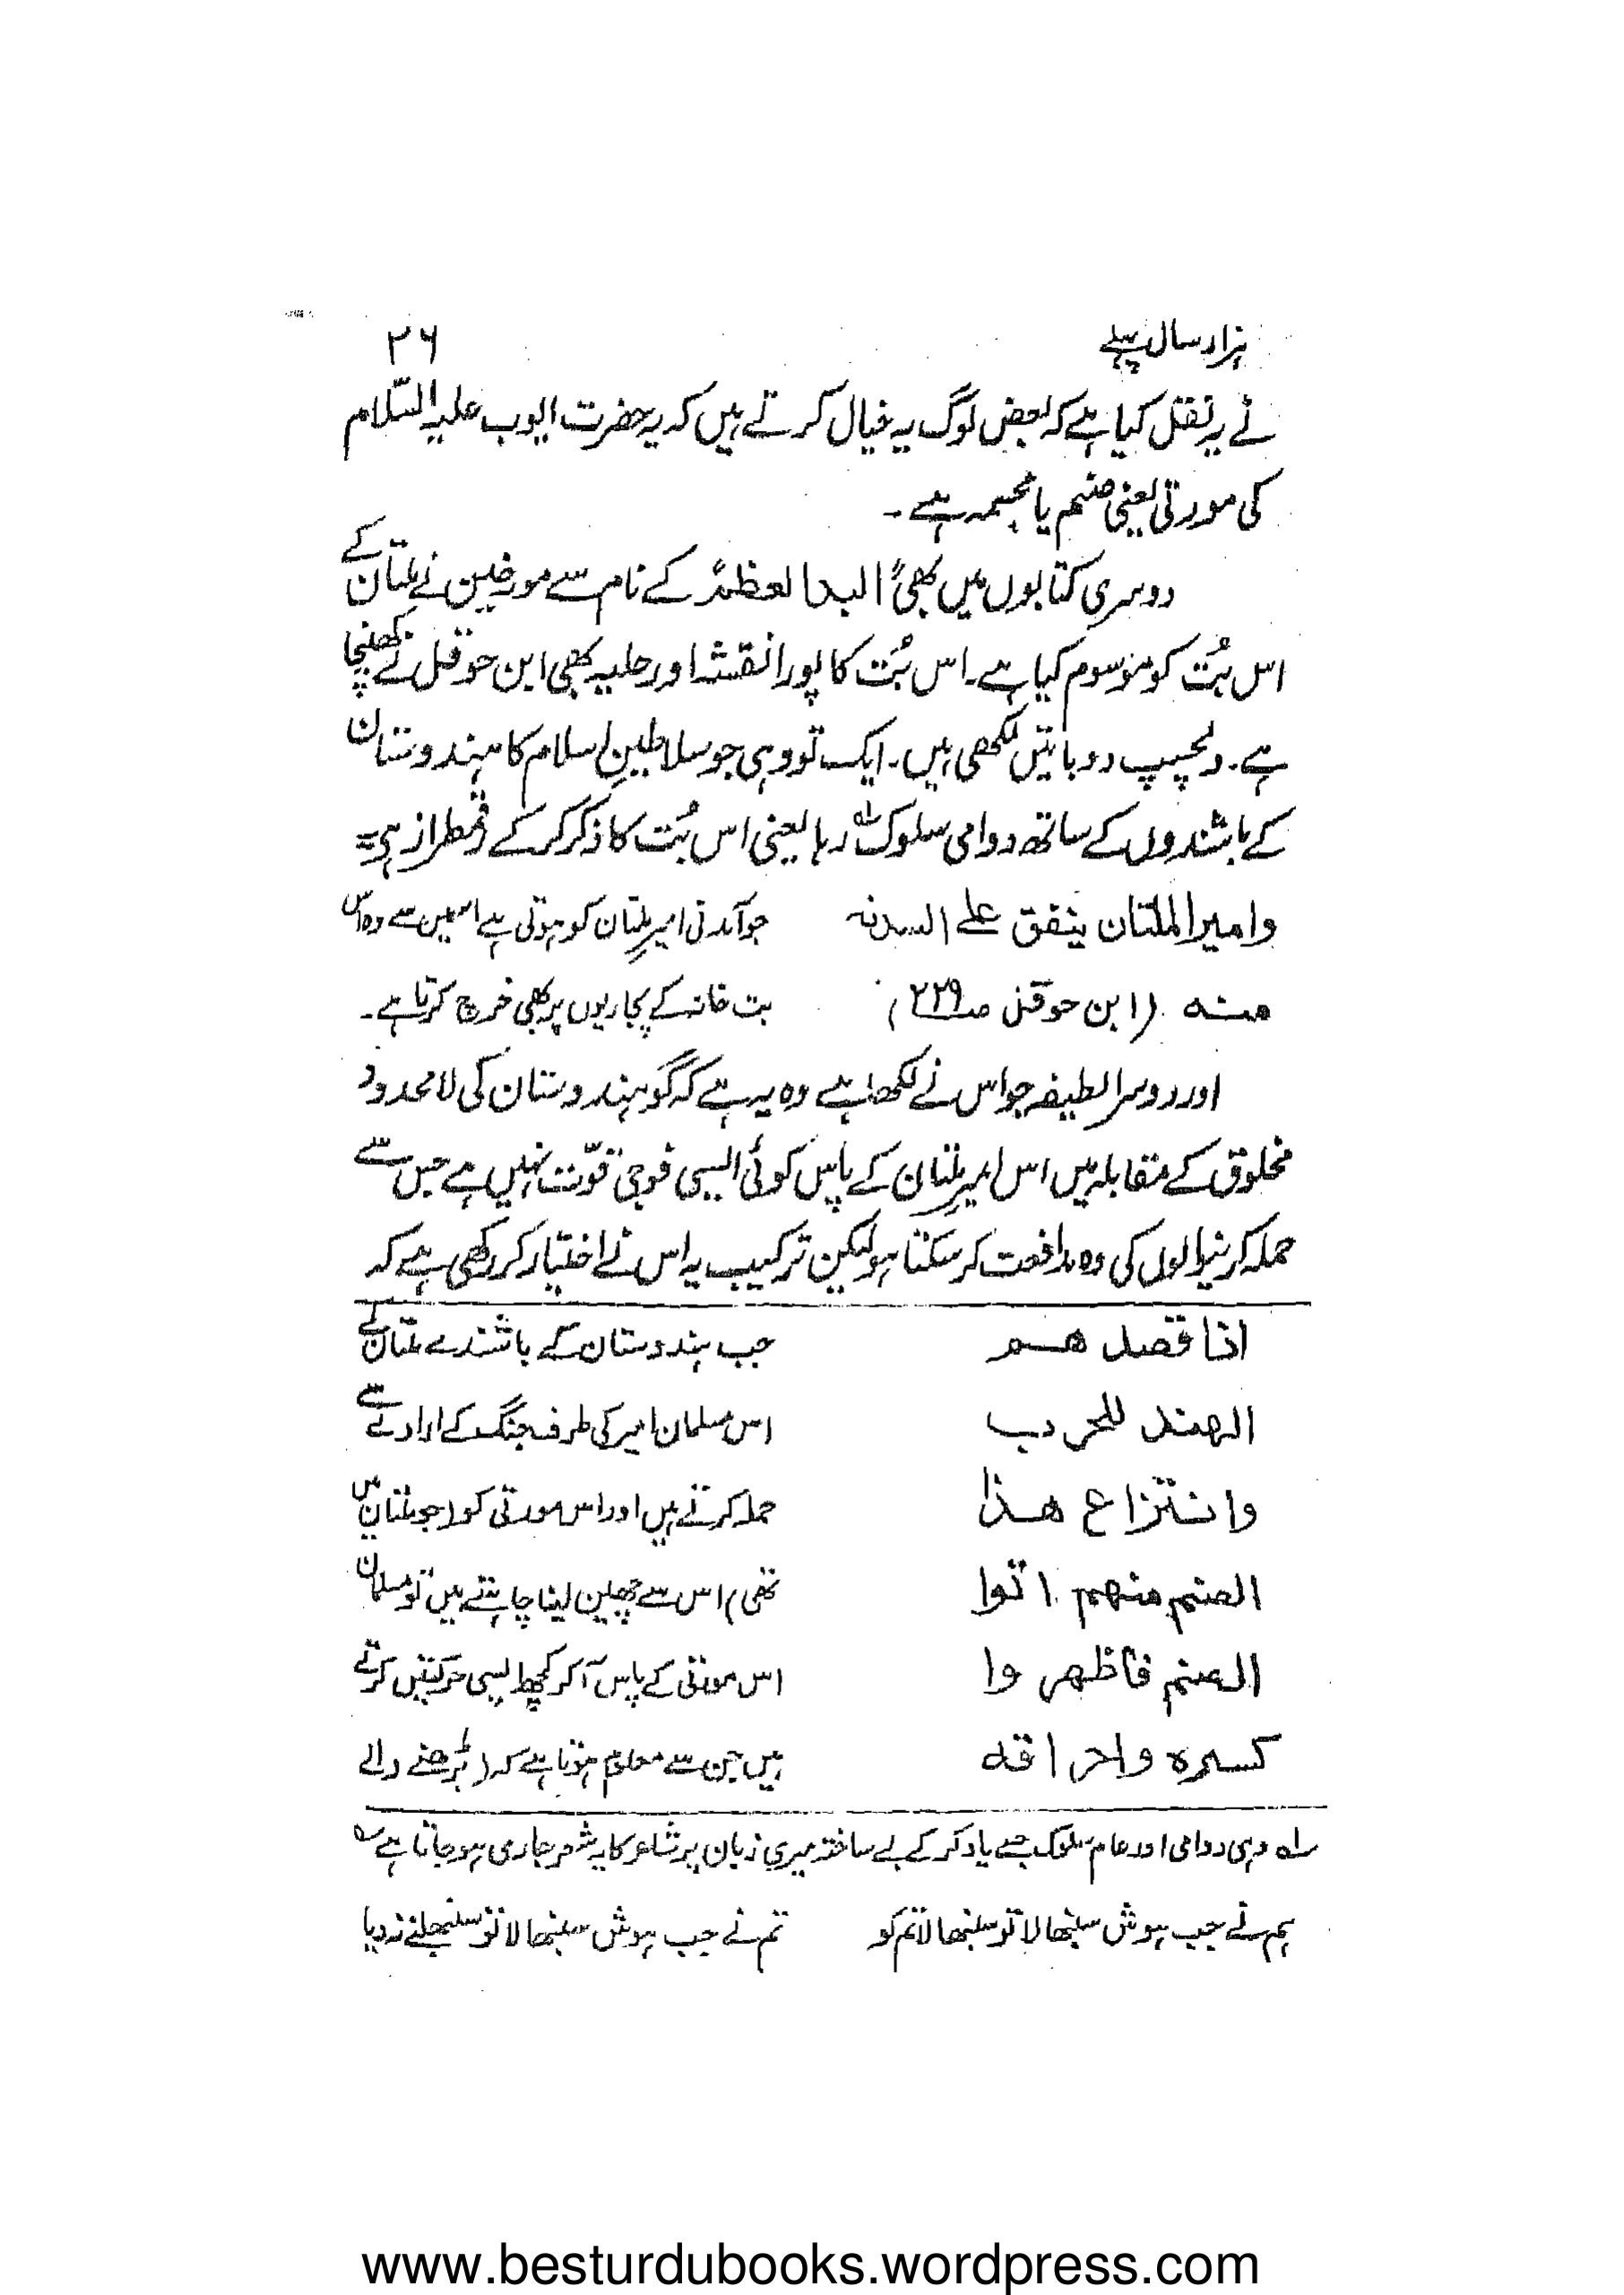 ہزار سال پہلے ۲۶
نے یہ نقل کیا ہے کہ بعض لوگ یہ خیال کرتے ہیں کہ یہ حضرت ایوب علیہ السّلام
کی مورتی یعنی صنم یا مجسمہ ہے۔
دوسری کتابوں میں بھی "البد العظم" کے نام سے مورخین نے ملتان کے
اس بُت کو موسوم کیا ہے۔ اس بُت کا پورا نقشہ اور حلیہ بھی ابن حوقل نے کھینچا
ہے۔ دلچسپ دو باتیں لکھی ہیں۔ ایک تو وہی جو سلاطینِ اسلام کا ہندوستان
کے باشندوں کے ساتھ دوامی سلوک لہ رہا یعنی اس بُت کا ذکر کر کے رقمطراز ہے۔
وامیر الملتان ینفق علے السدنہ جو آمدنی امیرِ ملتان کو ہوتی ہے اسمیں سے وہ اس
منہ (ابن حوقل صـ ۲۲۹) بت خانہ کے پجاریوں پر بھی خرچ کرتا ہے۔
اور دوسرا لطیفہ جو اس نے لکھا ہے وہ یہ ہے کہ گو ہندوستان کی لامحدود
مخلوق کے مقابلہ میں اس امیرِ ملتان کے پاس کوئی ایسی فوجی قوّت نہیں ہے جس سے
حملہ کرنیوالوں کی وہ مدافعت کر سکتا ہو لیکن ترکیب یہ اس نے اختیار کر رکھی ہے کہ
اذا قصد ھم جب ہندوستان کے باشندے ملتان کے
الھند للحرب اس مسلمان امیر کی طرف جنگ کے ارادے سے
وانتزاع ھذا حملہ کرتے ہیں اور اس مورتی کو (جو ملتان میں
الصنم منھم اتوا تھی) اس سے چھین لینا چاہتے ہیں تو مسلمان
الصنم فاظھروا اس مورتی کے پاس آ کر کچھ ایسی حرکتیں کرتے
کسرہ واحراقہ ہیں جن سے معلوم ہوتا ہے کہ (بڑھنے والے
لہ وہی دوامی اور عام سلوک جسے یاد کر کے بے ساختہ میری زبان پر شاعر کا یہ شعر جاری ہو جاتا ہے ؎
ہم نے جب ہوش سنبھالا تو سنبھالا تم کو تم نے جب ہوش سنبھالا تو سنبھلنے نہ دیا
www.besturdubooks.wordpress.com